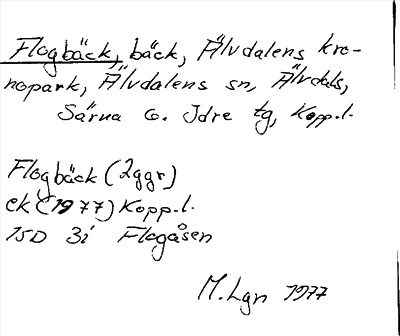 Flogbäck, bäck, Älvdalens kro-
nopark, Älvdalens sn, Älvdals,
Särna o. Idre tg, Kopp.l.
Flogbäck (2ggr)
ek (1977) Kopp.l.
15D 3i Flogåsen
M.Lgn 1977